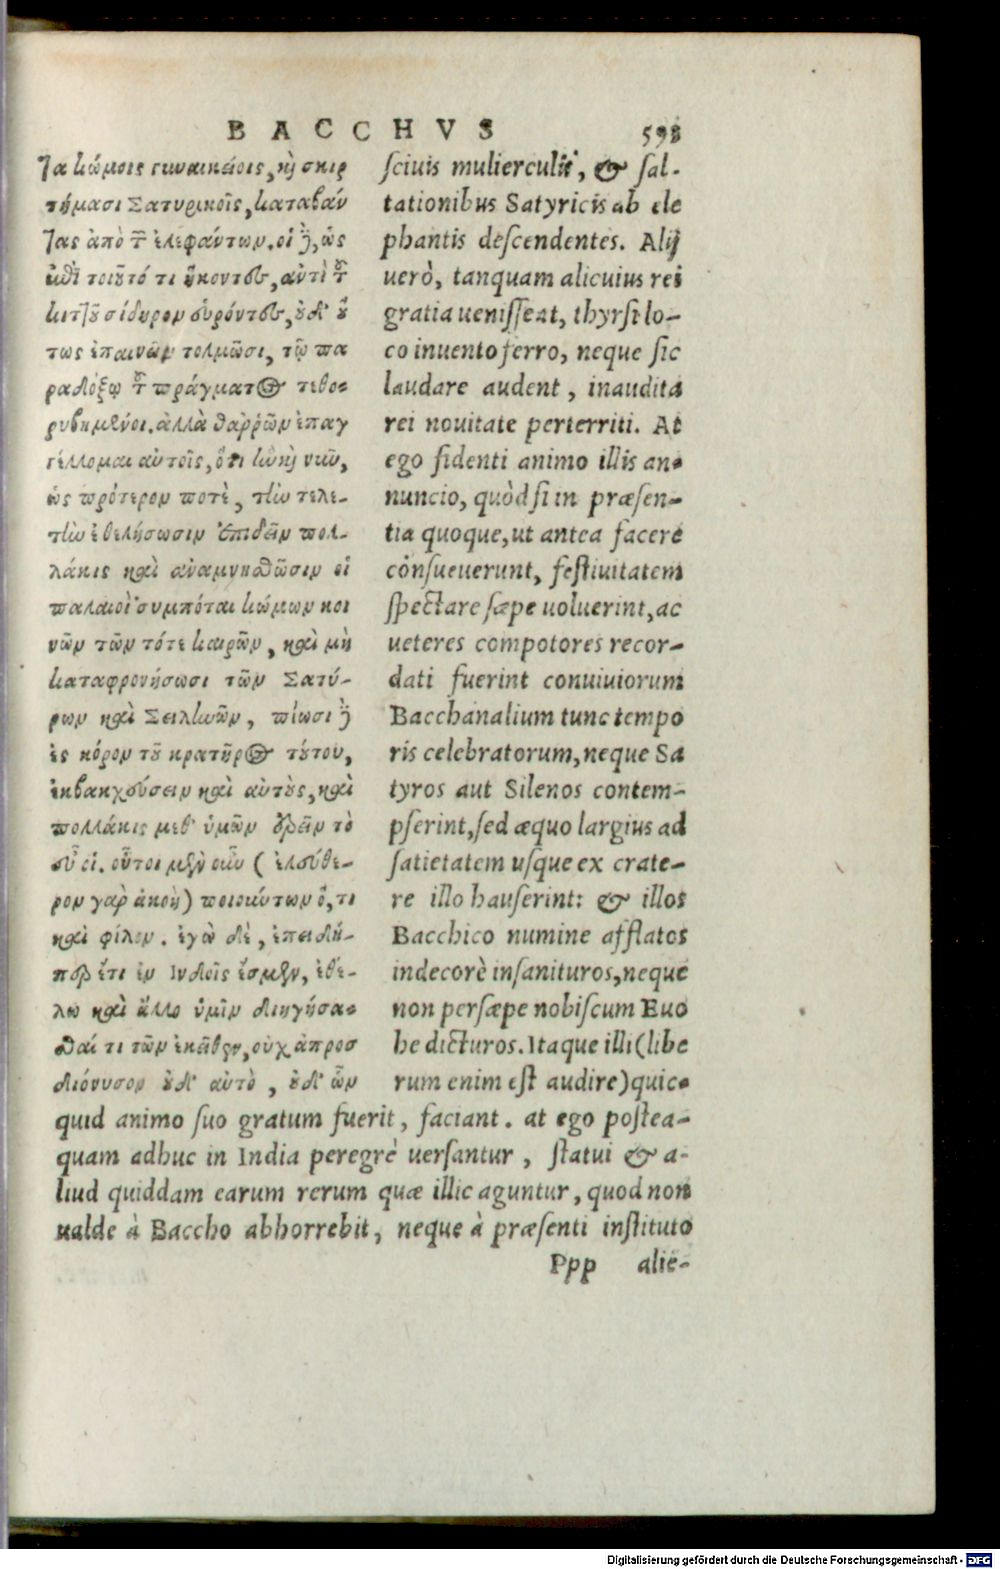 BACCHVS 598
τα κώμοις γυναικείοις, καὶ σκιρ
τήμασι Σατυρικοῖς, καταβάν
τας ἀπὸ τ ἐλεφάντων. οἱ δὲ, ὡς
ἐπὶ τοιοῦτό τι ἥκοντες, ἀντὶ τοῦ
κιττοῦ σίδηρον εὑρόντες, οὐδ' οὕ
τως ἐπαινεῖν τολμῶσι, τῷ πα
ραδόξῳ τοῦ πράγματος τεθο-
ρυβημένοι. ἀλλὰ θαῤῥῶν ἐπαγ
γέλλομαι αὐτοῖς, ὅτι κἂν καὶ νῦν,
ὡς πρότερον ποτὲ, τὴν τελε-
τὴν ἐθελήσωσιν ἐπιδεῖν πολ-
λάκις καὶ ἀναμνησθῶσιν οἱ
παλαιοὶ συμπόται κώμων κοι
νῶν τῶν τότε καιρῶν, καὶ μὴ
καταφρονήσωσι τῶν Σατύ-
ρων καὶ Σειληνῶν, πίωσι δὲ
ἐς κόρον τοῦ κρατῆρος τούτου,
ἐκβακχεύσειν καὶ αὐτοὺς, καὶ
πολλάκις μεθ' ὑμῶν ἐρεῖν τὸ
εὖ οἷ. οὗτοι μὲν οὖν (ἐλεύθε-
ρον γὰρ ἀκοὴ) ποιούντων ὅ, τι
καὶ φίλον. ἐγὼ δὲ, ἐπειδή-
περ ἔτι ἐν Ινδοῖς ἐσμεν, ἐθέ-
λω καὶ ἄλλο ὑμῖν διηγήσα-
σθαί τι τῶν ἐκεῖθεν, οὐχ ἀπροσ
διόνυσον οὐδ' αὐτὸ, οὐδ' ὧν
sciuis mulierculis, & sal-
tationibus Satyricis ab ele
phantis descendentes. Alij
uerò, tanquam alicuius rei
gratia uenissent, thyrsi lo-
co inuento ferro, neque sic
laudare audent, inaudita
rei nouitate perterriti. At
ego fidenti animo illis an-
nuncio, quòd si in præsen-
tia quoque, ut antea facere
cōnsueuerunt, festiuitatem
spectare sæpe uoluerint, ac
ueteres compotores recor-
dati fuerint conuiuiorum
Bacchanalium tunc tempo
ris celebratorum, neque Sa
tyros aut Silenos contem-
pserint, sed æquo largius ad
satietatem usque ex crate-
re illo hauserint: & illos
Bacchico numine afflatos
indecorè insanituros, neque
non persæpe nobiscum Euo
he dicturos. Itaque illi (libe
rum enim est audire) quic-
quid animo suo gratum fuerit, faciant. at ego postea-
quam adhuc in India peregrè uersantur, statui & a-
liud quiddam earum rerum quæ illic aguntur, quod non
ualde à Baccho abhorrebit, neque à præsenti instituto
Ppp alie-
Digitalisierung gefördert durch die Deutsche Forschungsgemeinschaft - DFG